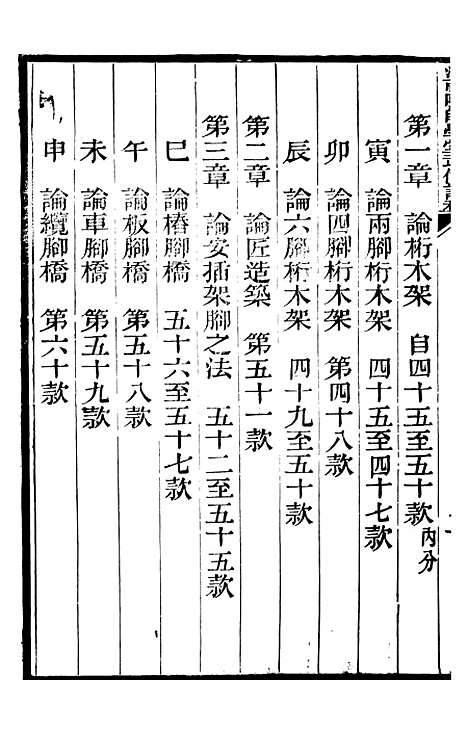 第一章　論桁木架　自四十五至五十款內分
寅　論兩腳桁木架　四十五至四十七款
卯　論四腳桁木架　第四十八款
辰　論六腳桁木架　四十九至五十款
第二章　論匠造築　第五十一款
第三章　論安插架腳之法　五十二至五十五款
巳　論樁腳橋　五十六至五十七款
午　論板腳橋　第五十八款
未　論車腳橋　第五十九款
申　論纜腳橋　第六十款